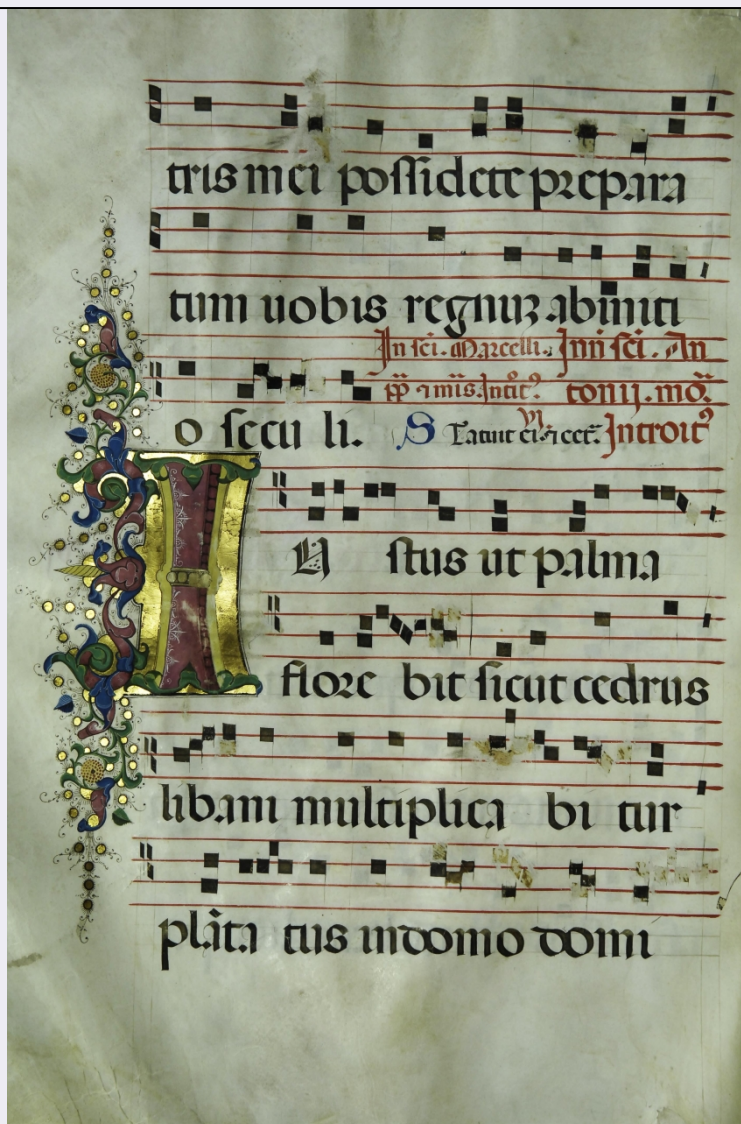 tris mei possidete prepara
tum uobis regnuz abiniti
In sci. Marcelli. Inn sci. An
pp̄ ⁊ mīs. Introit⁹ tonij. mo.
o secu li. S Tatuit ei ⁊ cet. Introit⁹
I U stus ut palma
flore bit sicut cedrus
libani multiplica bi tur
plāta tus indomo domi